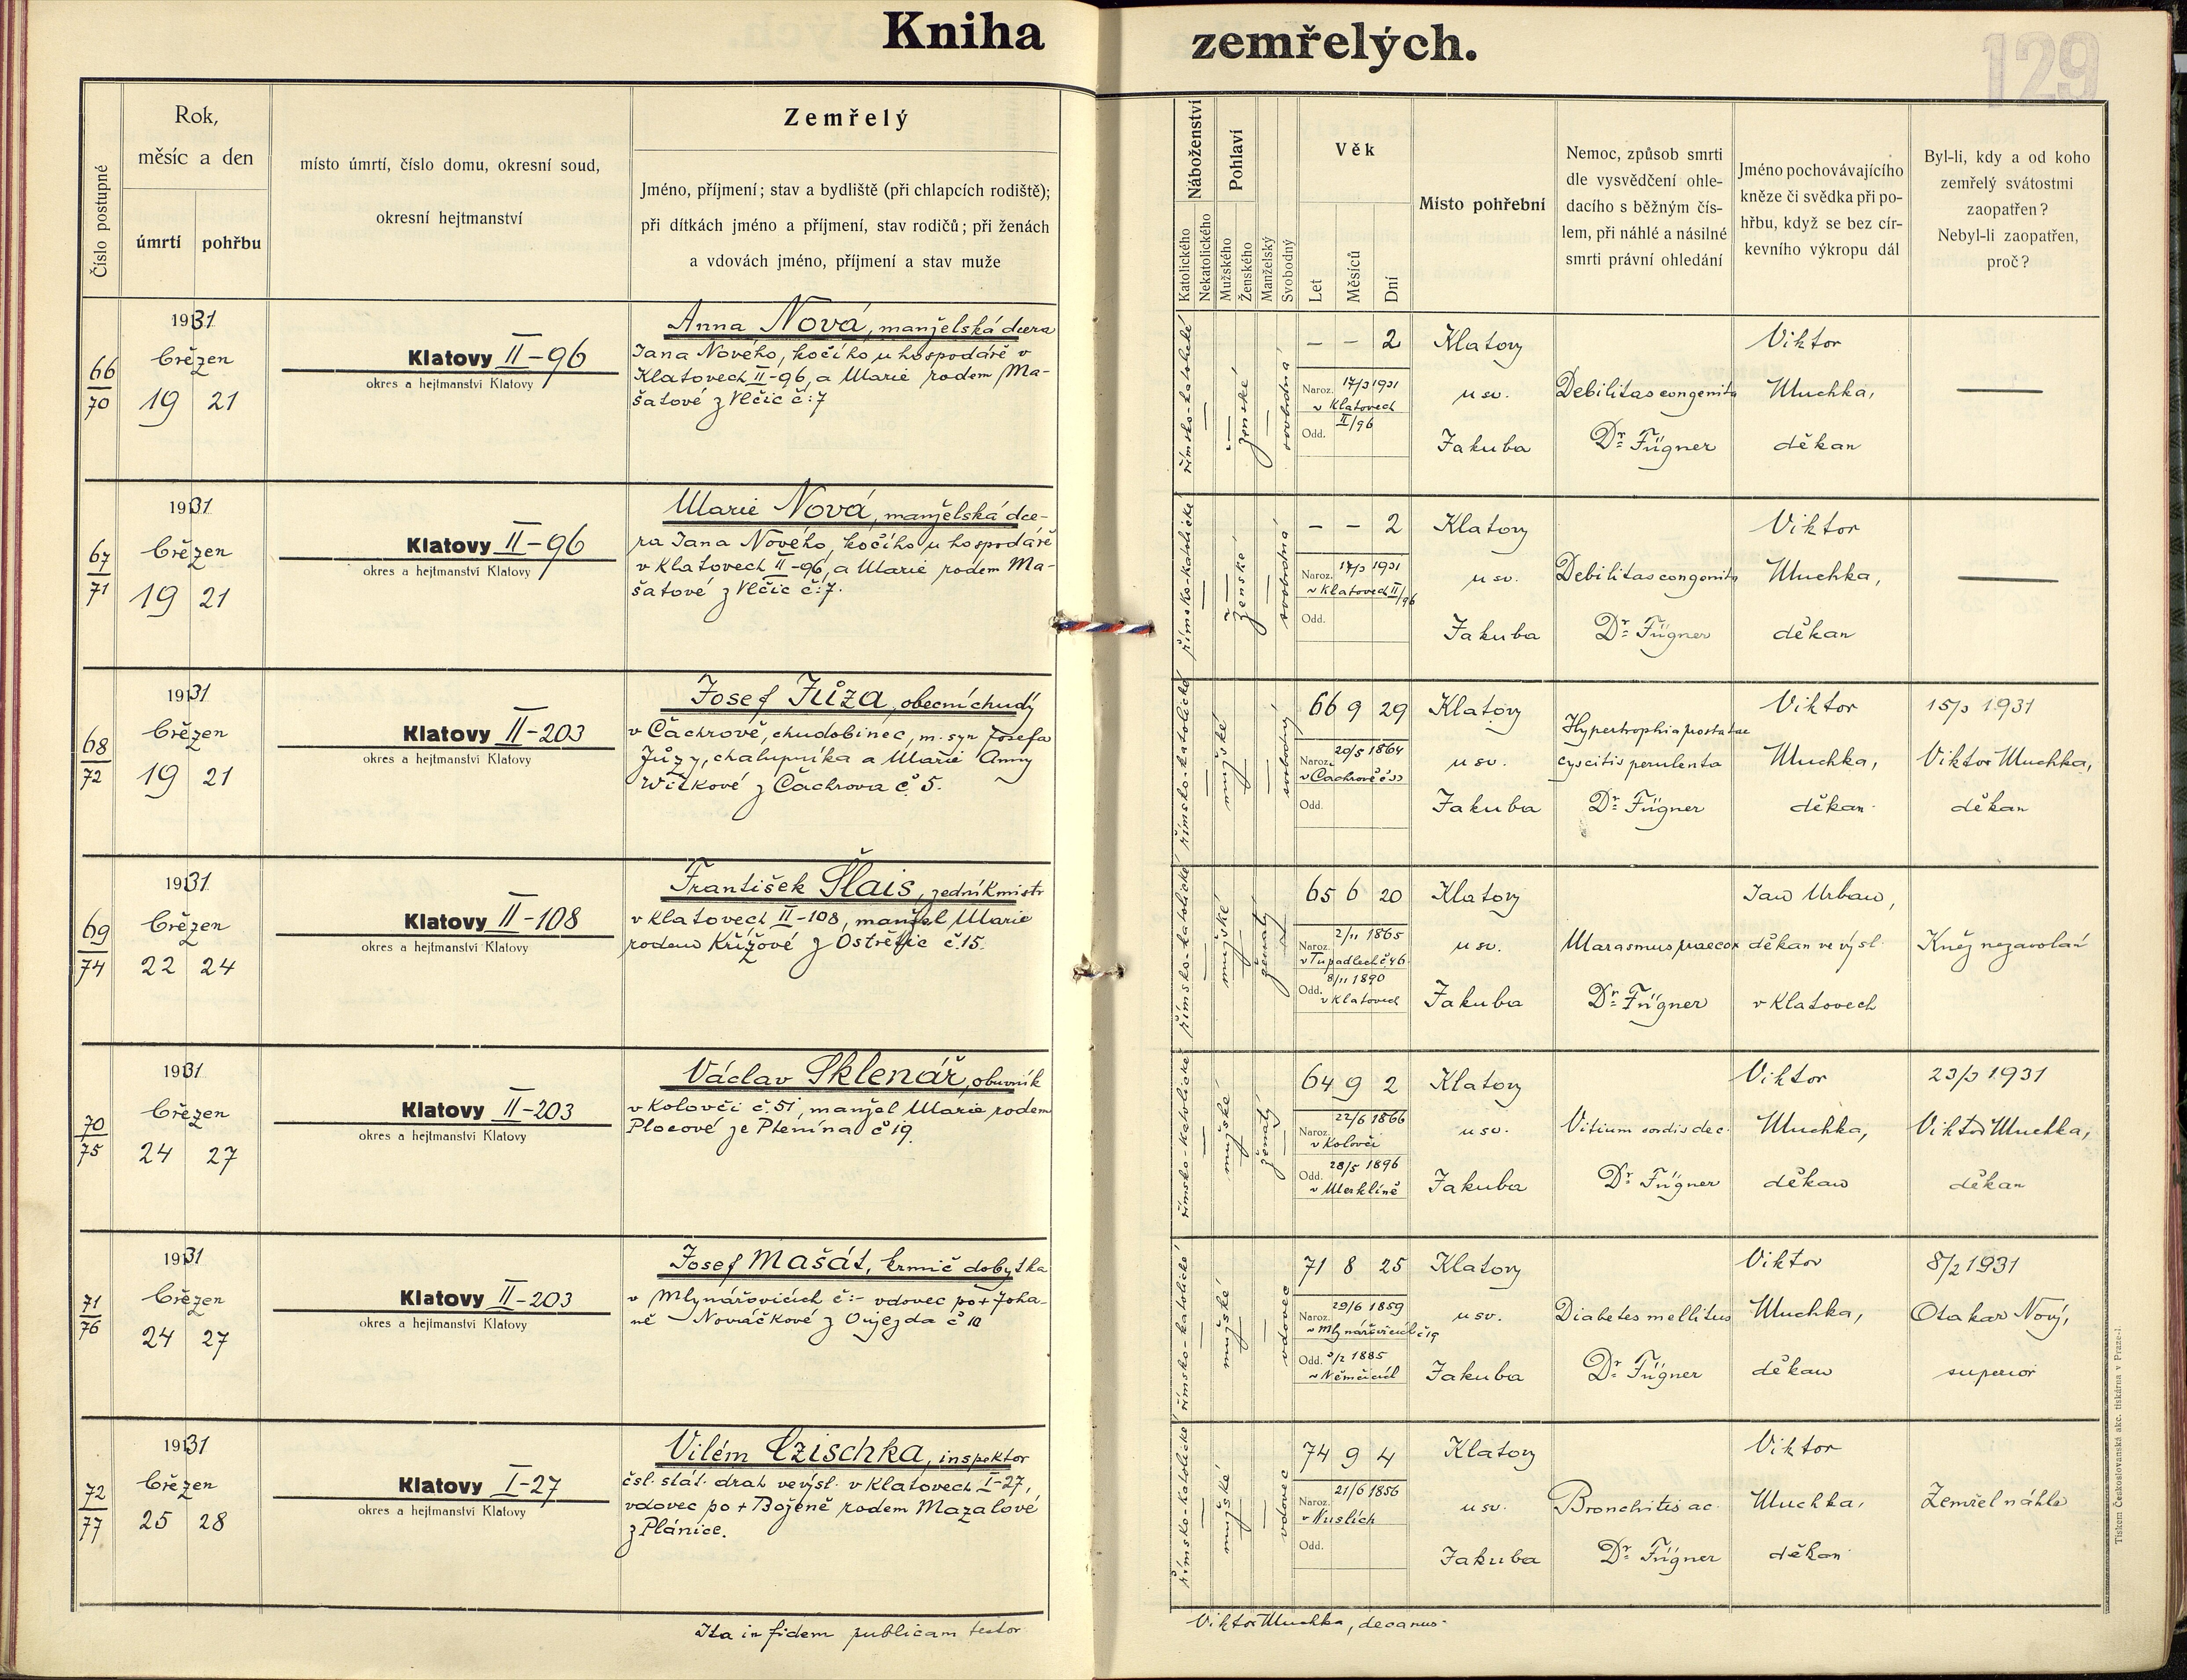 Kniha zemřelých.
129
Číslo postupné
Rok,
měsíc a den
úmrtí
pohřbu
místo úmrtí, číslo domu, okresní soud,
okresní hejtmanství
Zemřelý
Jméno, příjmení; stav a bydliště (při chlapcích rodiště);
při dítkách jméno a příjmení, stav rodičů; při ženách
a vdovách jméno, příjmení a stav muže
Náboženství
Katolického
Nekatolického
Pohlaví
Mužského
Ženského
Manželský
Svobodný
Věk
Let
Měsíců
Dní
Místo pohřební
Nemoc, způsob smrti
dle vysvědčení ohle-
dacího s běžným čís-
lem, při náhlé a násilné
smrti právní ohledání
Jméno pochovávajícího
kněze či svědka při po-
hřbu, když se bez cír-
kevního výkropu dál
Byl-li, kdy a od koho
zemřelý svátostmi
zaopatřen?
Nebyl-li zaopatřen,
proč?
66
70
1931
březen
19 21
Klatovy II-96
okres a hejtmanství Klatovy
Anna Nová, manželská dcera
Jana Nového, kočího u hospodáře v
Klatovech II-96, a Marie rodem Ma-
šatové z Vlčic č:7
římsko-katolické
—
—
ženské
—
svobodná
– – 2
Naroz. 17/3 1931
v Klatovech
II/96
Odd.
Klatovy
u sv.
Jakuba
Debilitas congenita
Dr. Fügner
Viktor
Muchka,
děkan
—
67
71
1931
březen
19 21
Klatovy II-96
okres a hejtmanství Klatovy
Marie Nová, manželská dce-
ra Jana Nového, kočího u hospodáře
v Klatovech II-96, a Marie rodem Ma-
šatové z Vlčic č:7.
římsko-katolické
—
—
ženské
—
svobodná
– – 2
Naroz. 17/3 1931
v Klatovech II/96
Odd.
Klatovy
u sv.
Jakuba
Debilitas congenita
Dr. Fügner
Viktor
Muchka,
děkan
—
68
72
1931
březen
19 21
Klatovy II-203
okres a hejtmanství Klatovy
Josef Jůza, obecní chudý
v Čachrově, chudobinec, m. syn Josefa
Jůzy, chalupníka a Marie Anny
Witkové z Čachrova č. 5.
římsko-katolické
—
mužské
—
—
svobodný
66 9 29
Naroz. 20/5 1864
v Čachrově č 33
Odd.
Klatovy
u sv.
Jakuba
Hypertrophia prostatae
cyscitis perulenta
Dr. Fügner
Viktor
Muchka,
děkan
15/3 1931
Viktor Muchka,
děkan
69
74
1931
březen
22 24
Klatovy II-108
okres a hejtmanství Klatovy
František Šlais, zedník mistr
v Klatovech II-108, manžel Marie
rodem Křížové z Ostřetic č.15.
římsko-katolické
—
mužské
—
ženatý
—
65 6 20
Naroz. 2/11 1865
v Tupadlech č 46
Odd. 8/11 1890
v Klatovech
Klatovy
u sv.
Jakuba
Marasmus praecox
Dr. Fügner
Jan Urban,
děkan ve výsl.
v Klatovech
Kněz nezavolán
70
75
1931
březen
24 27
Klatovy II-203
okres a hejtmanství Klatovy
Václav Sklenář, obuvník
v Kolovči č.51, manžel Marie rodem
Plocové ze Ptenína č 19.
římsko-katolické
—
mužské
—
ženatý
—
64 9 2
Naroz. 22/6 1866
v Kolovči
Odd. 28/5 1896
v Merklíně
Klatovy
u sv.
Jakuba
Vitium cordis dec.
Dr. Fügner
Viktor
Muchka,
děkan
23/3 1931
Viktor Muchka,
děkan
71
76
1931
březen
24 27
Klatovy II-203
okres a hejtmanství Klatovy
Josef Mašát, krmič dobytka
v Mlynářovicích č:- vdovec po + Joha-
ně Nováčkové z Oujezda č 10
římsko-katolické
—
mužské
—
—
vdovec
71 8 25
Naroz. 29/6 1859
v Mlynářovicích č 19
Odd. 3/2 1885
v Němčicích
Klatovy
u sv.
Jakuba
Diabetes mellitus
Dr. Fügner
Viktor
Muchka,
děkan
8/2 1931
Otakar Nový,
superior
72
77
1931
březen
25 28
Klatovy I-27
okres a hejtmanství Klatovy
Vilém Czischka, inspektor
čsl. stát. drah ve výsl. v Klatovech I-27,
vdovec po + Boženě rodem Mazalové
z Plánice.
římsko-katolické
—
mužské
—
—
vdovec
74 9 4
Naroz. 21/6 1856
v Nuslích
Odd.
Klatovy
u sv.
Jakuba
Bronchitis ac.
Dr. Fügner
Viktor
Muchka,
děkan
Zemřel náhle
Ita in fidem publicam testor
Viktor Muchka, decanus
Tiskem Československá akc. tiskárna v Praze-I.